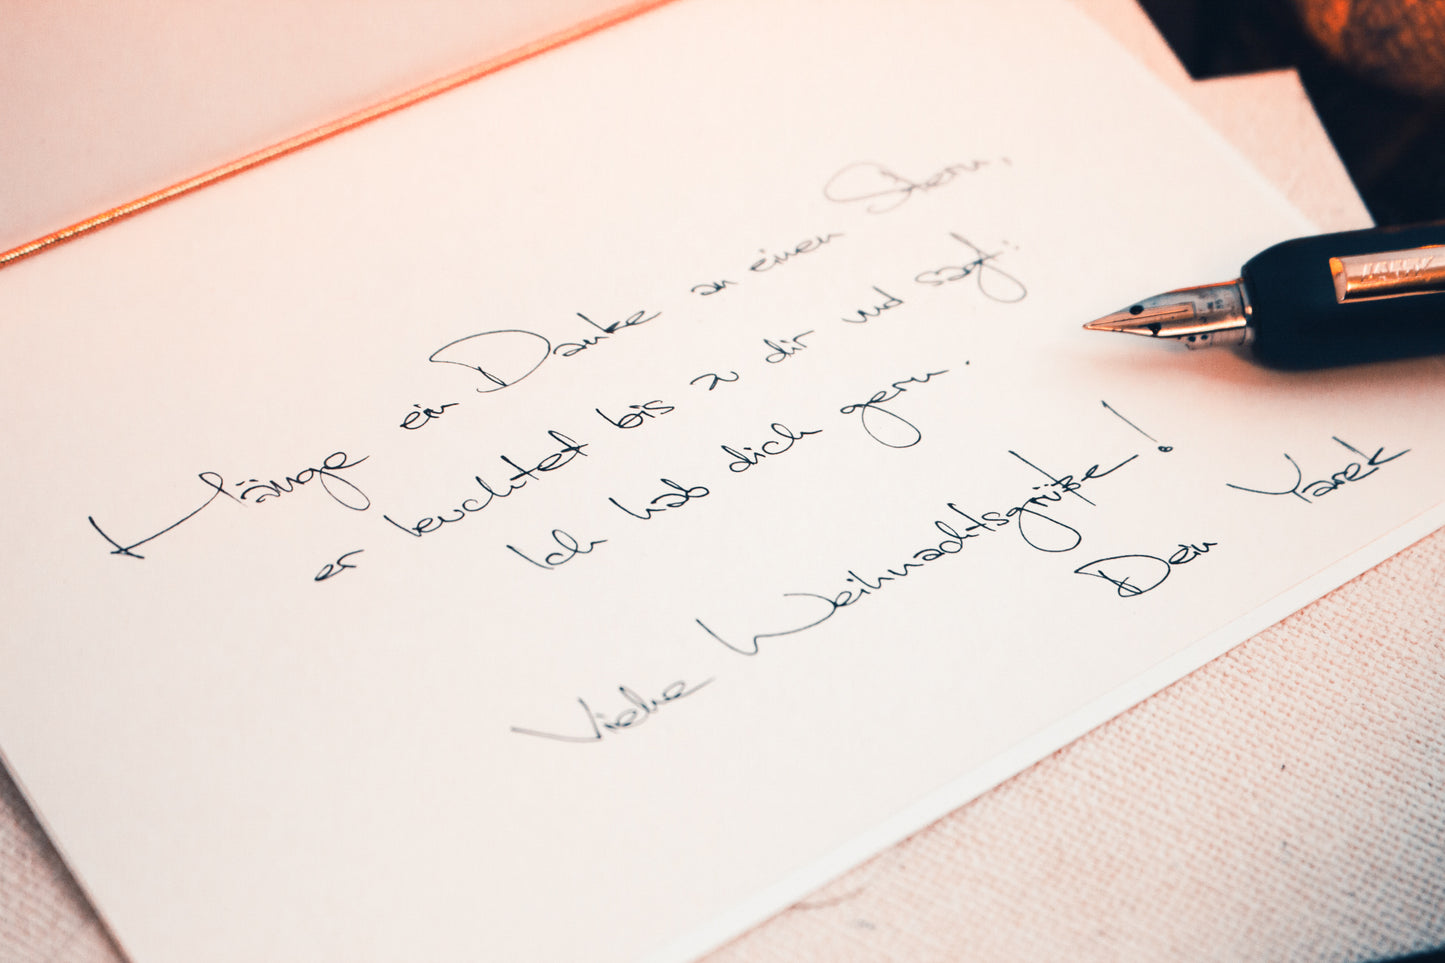 Hänge ein Danke an einen Stern,
er leuchtet bis zu dir und sagt:
Ich hab dich gern.
Viele Weihnachtsgrüße!
Dein Marek
LAMY